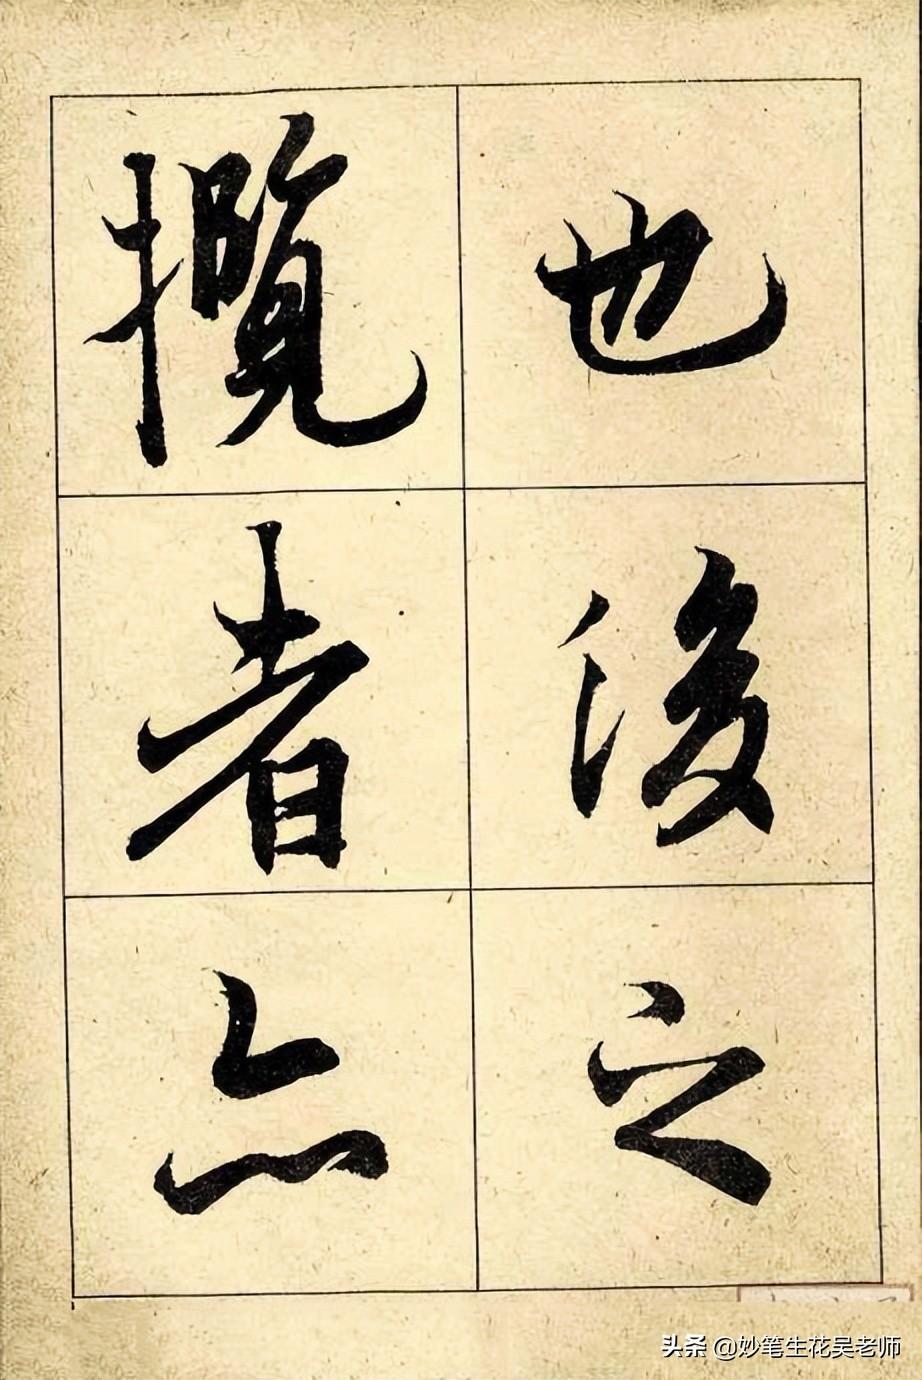 也後之
攬者亦
头条 @妙笔生花吴老师